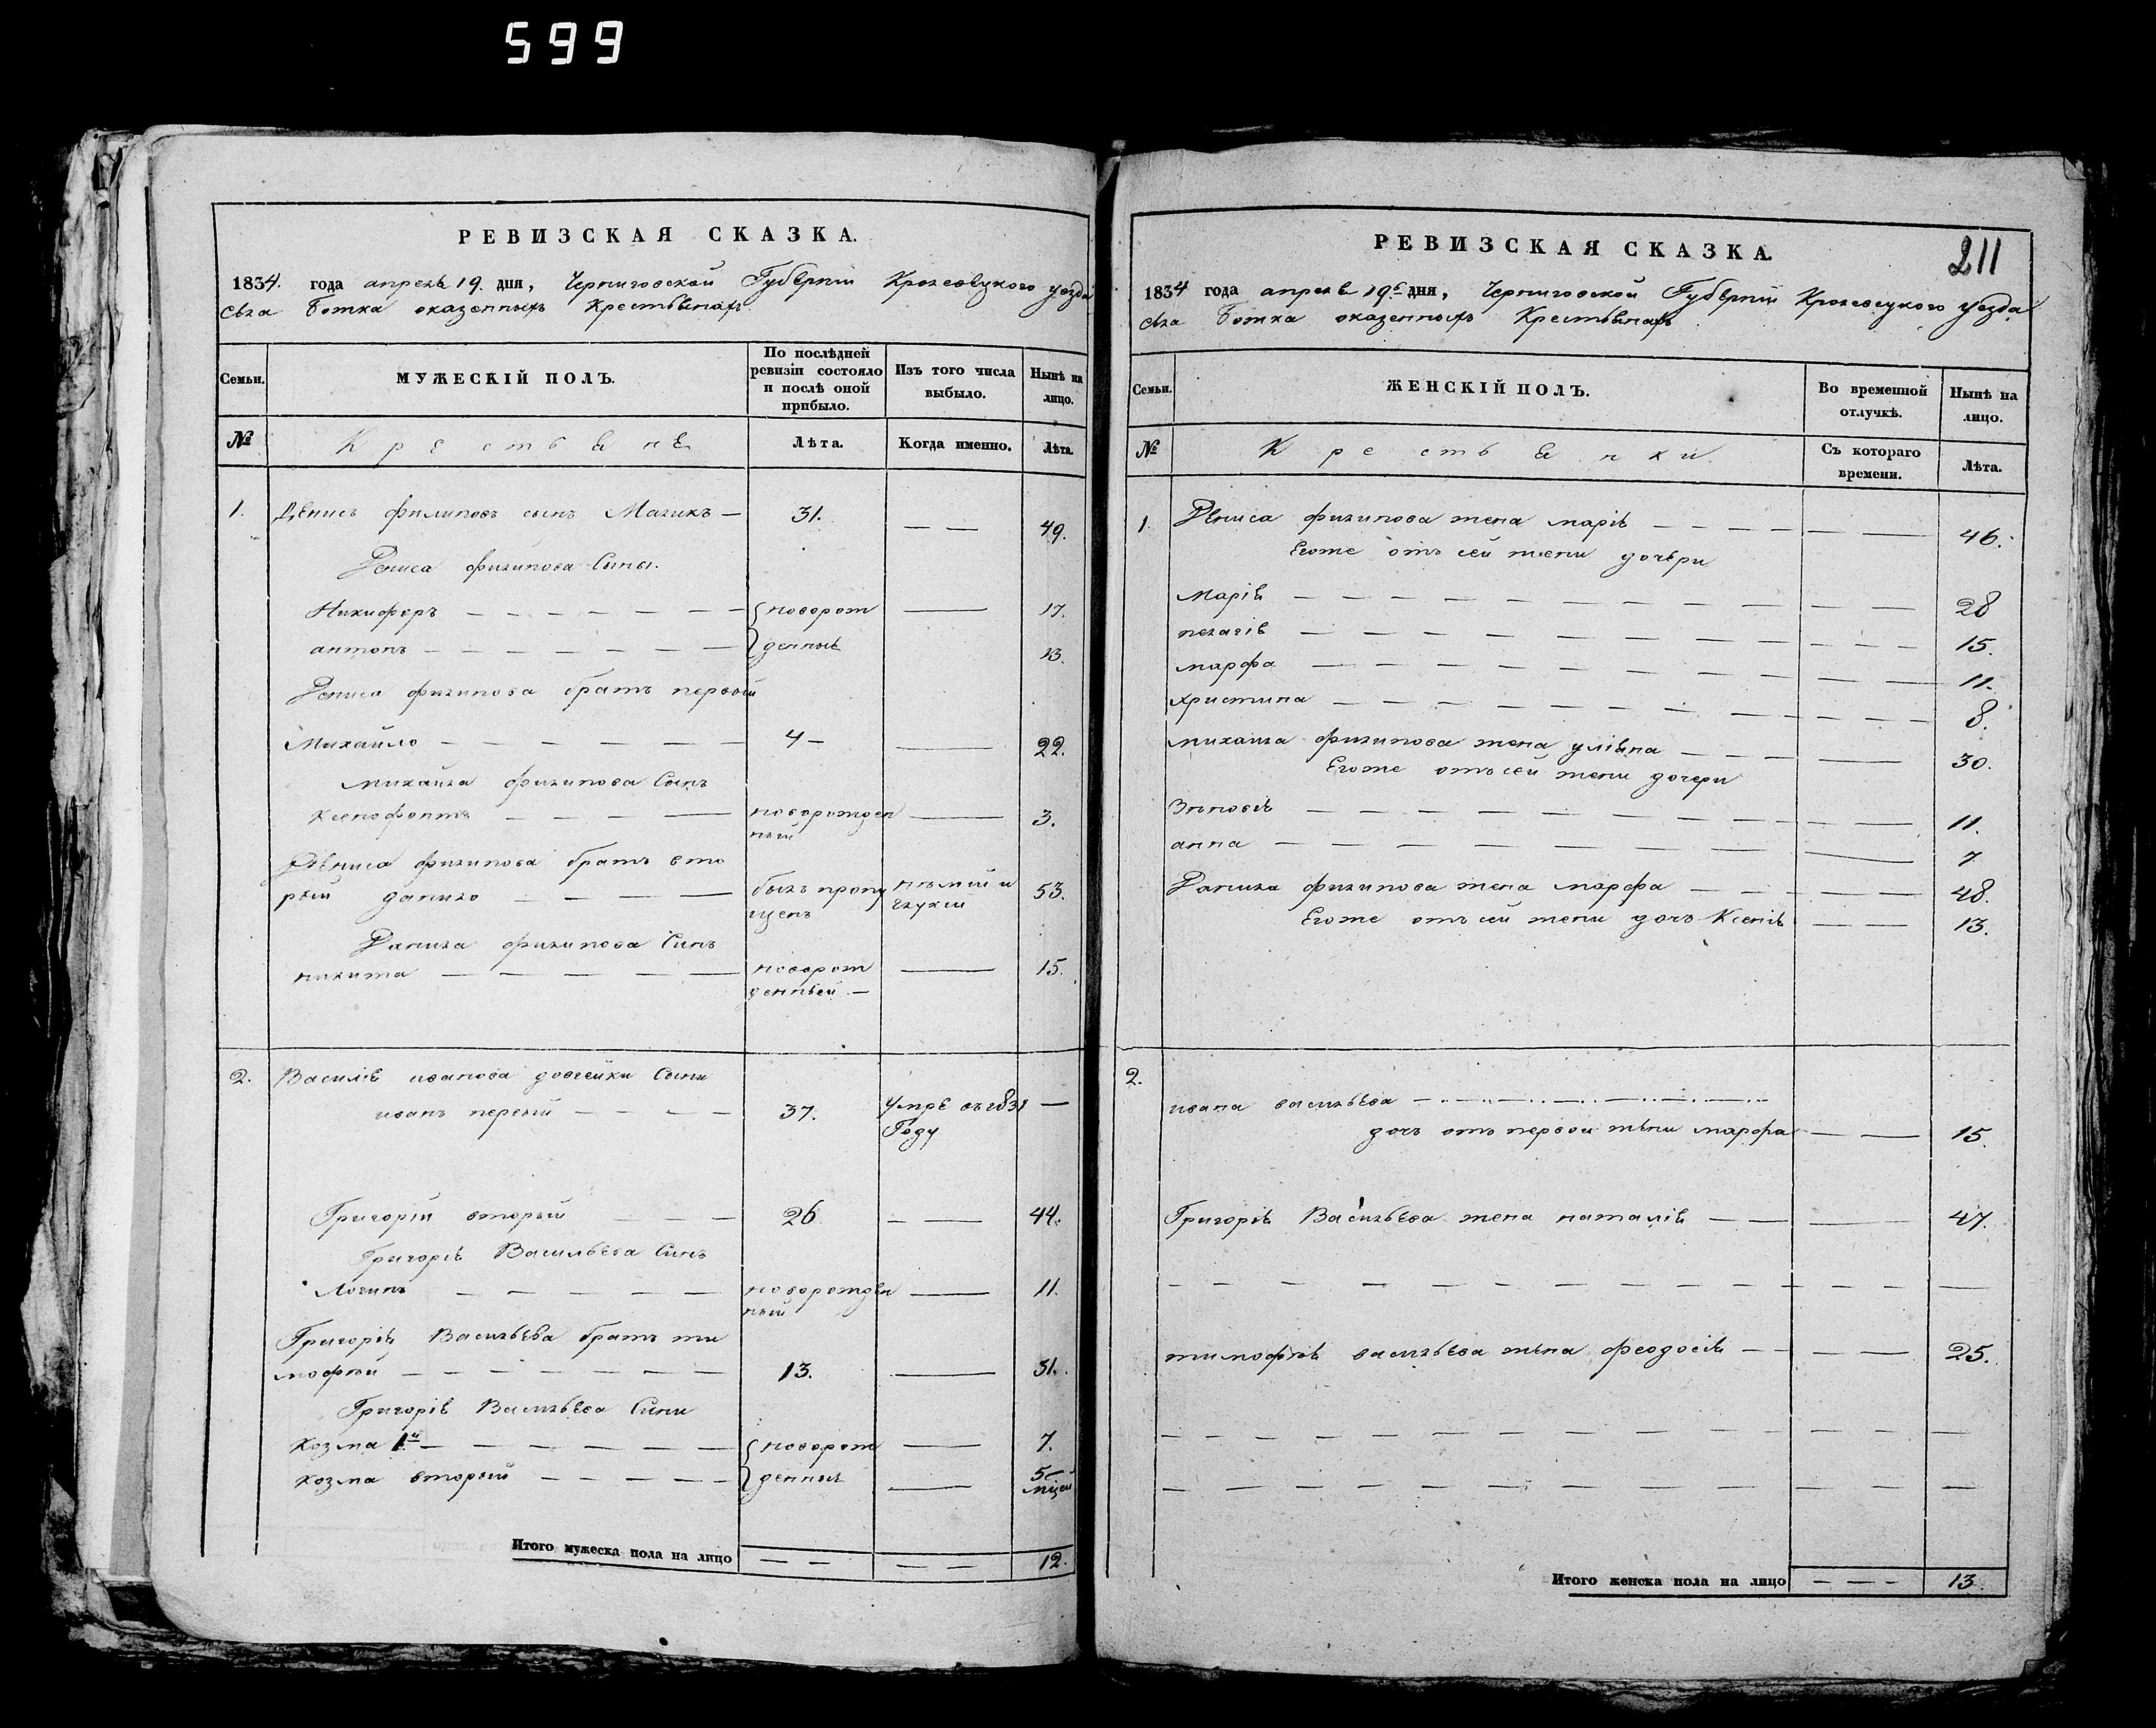 599
РЕВИЗСКАЯ СКАЗКА.
1834. года апреля 19. дня, Черниговской Губерніи Кролевецкого уезда
села Ботка оказенныхъ Крестьянахъ
Семьи.
МУЖЕСКІЙ ПОЛЪ.
По послѣдней
ревизіи состояло
и послѣ оной
прибыло.
Изъ того числа
выбыло.
Нынѣ на
лицо.
№
Крестьяне
Лѣта.
Когда именно.
Лѣта.
1. Денисъ филиповъ сынъ Магикъ — 31. — — 49.
Дениса филипова Сыны.
Никифоръ — новорож — 17.
антонъ — денные 13.
Дениса филипова братъ первый
Михайло — 4 — — 22.
михайла филипова Сынъ
ксенофонтъ — новорожден — 3.
ный
Дениса филипова братъ вто
рый данило — былъ пропу немій и 53.
щенъ глухій
Данила филипова Синъ
никита — новорож — 15.
денный —
2. Василіе иванова довгейки Сыни
иванъ первій — 37. Умре въ 1831 —
Году
Григорій вторый — 26 — — 44.
Григоріе Васильева Синъ
Логинъ — новорожден — 11.
ный
Григорія Васильева братъ ти
мофей — 13. — 31.
Григоріе Васильева Сини
козма 1й — новорож — 7.
козма вторый — денные — 5
мцей
Итого мужеска пола на лицо — — — — 12.
РЕВИЗСКАЯ СКАЗКА.
211
1834 года апреля 19го дня, Черниговской Губерніи Кролевецкого уезда
села Ботка оказенныхъ Крестьянахъ
Семьи.
ЖЕНСКІЙ ПОЛЪ.
Во временной
отлучкѣ.
Нынѣ на
лицо.
№
Крестьянки
Съ котораго
времени.
Лѣта.
1. Дениса филипова жена маріе — 46.
Егоже отъ сей жени дочери
Маріе — 28
пелагіе — 15.
марфа — 11.
христина — 8.
михаила филипова жена уліяна — 30.
Егоже отъ сей жени дочери
Зиновіе — 11.
анна — 7
Данила филипова жена марфа — 48.
Егоже отъ сей жени дочъ Ксенія — 13.
2.
ивана васильева —
дочъ отъ первои жени марфа — 15.
Григорія Васильева жена наталіе — 47.
тимофея васильева жена феодосіе — 25.
Итого женска пола на лицо — — — 13.